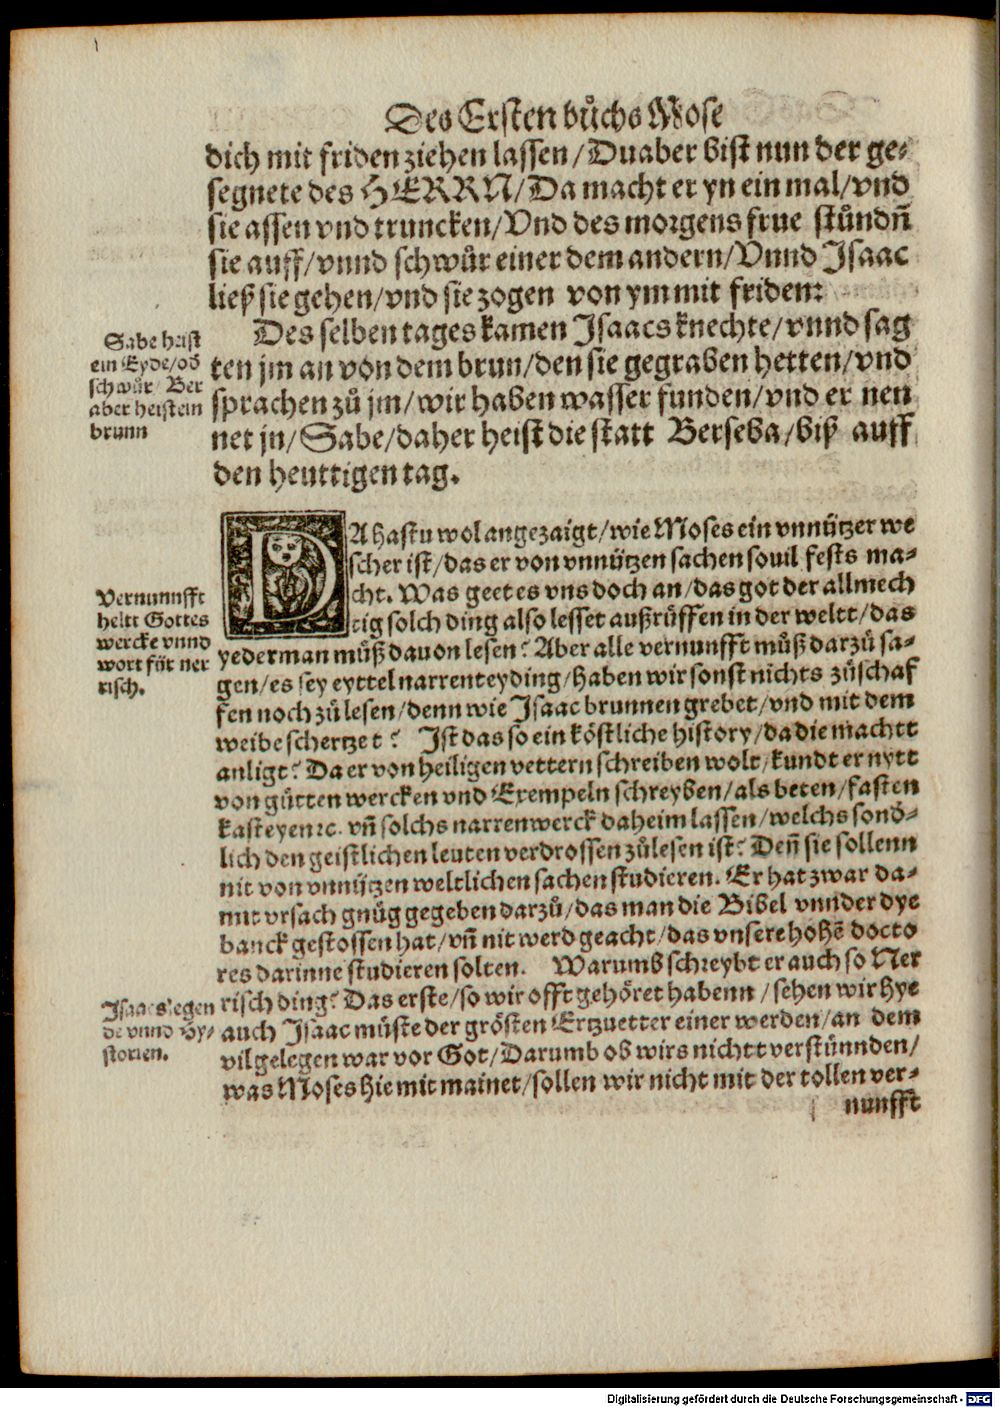 Des Ersten bůchs Mose
dich mit friden ziehen lassen/Du aber bist nun der ge-
segnete des HERRN/Da macht er yn ein mal/vnd
sie assen vnd truncken/Vnd des morgens frue stůndñ
sie auff/vnnd schwůr einer dem andern/Vnnd Isaac
ließ sie gehen/vnd sie zogen von ym mit friden:
Des selben tages kamen Isaacs knechte/vnnd sag
ten jm an von dem brun/den sie gegraben hetten/vnd
sprachen zů jm/wir haben wasser funden/vnd er nen
net jn/Sabe/daher heist die statt Berseba/biß auff
den heuttigen tag.
Sabe heist
ein Eyde/od̄
schwůr/Ber
aber heist ein
brunn
DA hastu wol angezaigt/wie Moses ein vnnützer we
scher ist/das er von vnnützen sachen souil fests ma-
cht. Was geet es vns doch an/das got der allmech
tig solch ding also lesset außrůffen in der weltt/das
yederman můß dauon lesen? Aber alle vernunfft můß darzů sa-
gen/es sey eyttel narrenteyding/haben wir sonst nichts zůschaf
fen noch zů lesen/denn wie Isaac brunnen grebet/vnd mit dem
weibe schertzet? Ist das so ein köstliche history/da die machtt
anligt? Da er von heiligen vettern schreiben wolt/kundt er nytt
von gůtten wercken vnd Exempeln schreyben/als beten/fasten
kasteyen ꝛc. vñ solchs narrenwerck daheim lassen/welchs sond̄-
lich den geistlichen leuten verdrossen zůlesen ist? Deñ sie sollenn
nit von vnnützen weltlichen sachen studieren. Er hat zwar da-
mit vrsach gnůg gegeben darzů/das man die Bibel vnnder dye
banck gestossen hat/vñ nit werd geacht/das vnsere hohē docto
res darinne studieren solten. Warumb schreybt er auch so Ner
risch ding? Das erste/so wir offt gehöret habenn/sehen wir hye
auch Isaac můste der grösten Ertzuetter einer werden/an dem
vil gelegen war vor Got/Darumb ob wirs nichtt verstůnnden/
was Moses hie mit mainet/sollen wir nicht mit der tollen ver-
nunfft
Vernunnfft
heltt Gottes
wercke vnnd
wort für ner
risch.
Isaacs legen
de vnnd Hy-
storien.
Digitalisierung gefördert durch die Deutsche Forschungsgemeinschaft - DFG